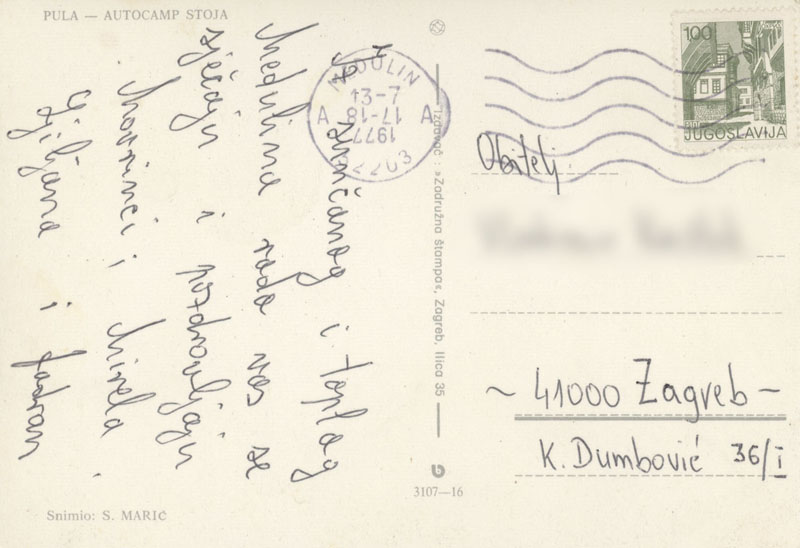 PULA — AUTOCAMP STOJA
Iz sunčanog i toplog
Medulina rado vas se
sjećaju i pozdravljaju
Mavrinci, Mirela
Ljiljana i Jadran
Snimio: S. MARIĆ
MEDULIN
A A
17-18
1977
52203
Izdavač: »Zadružna štampa«, Zagreb, Ilica 35
3107—16
100
JUGOSLAVIJA
Obitelj
~ 41000 Zagreb ~
K. Dumbović 36/I